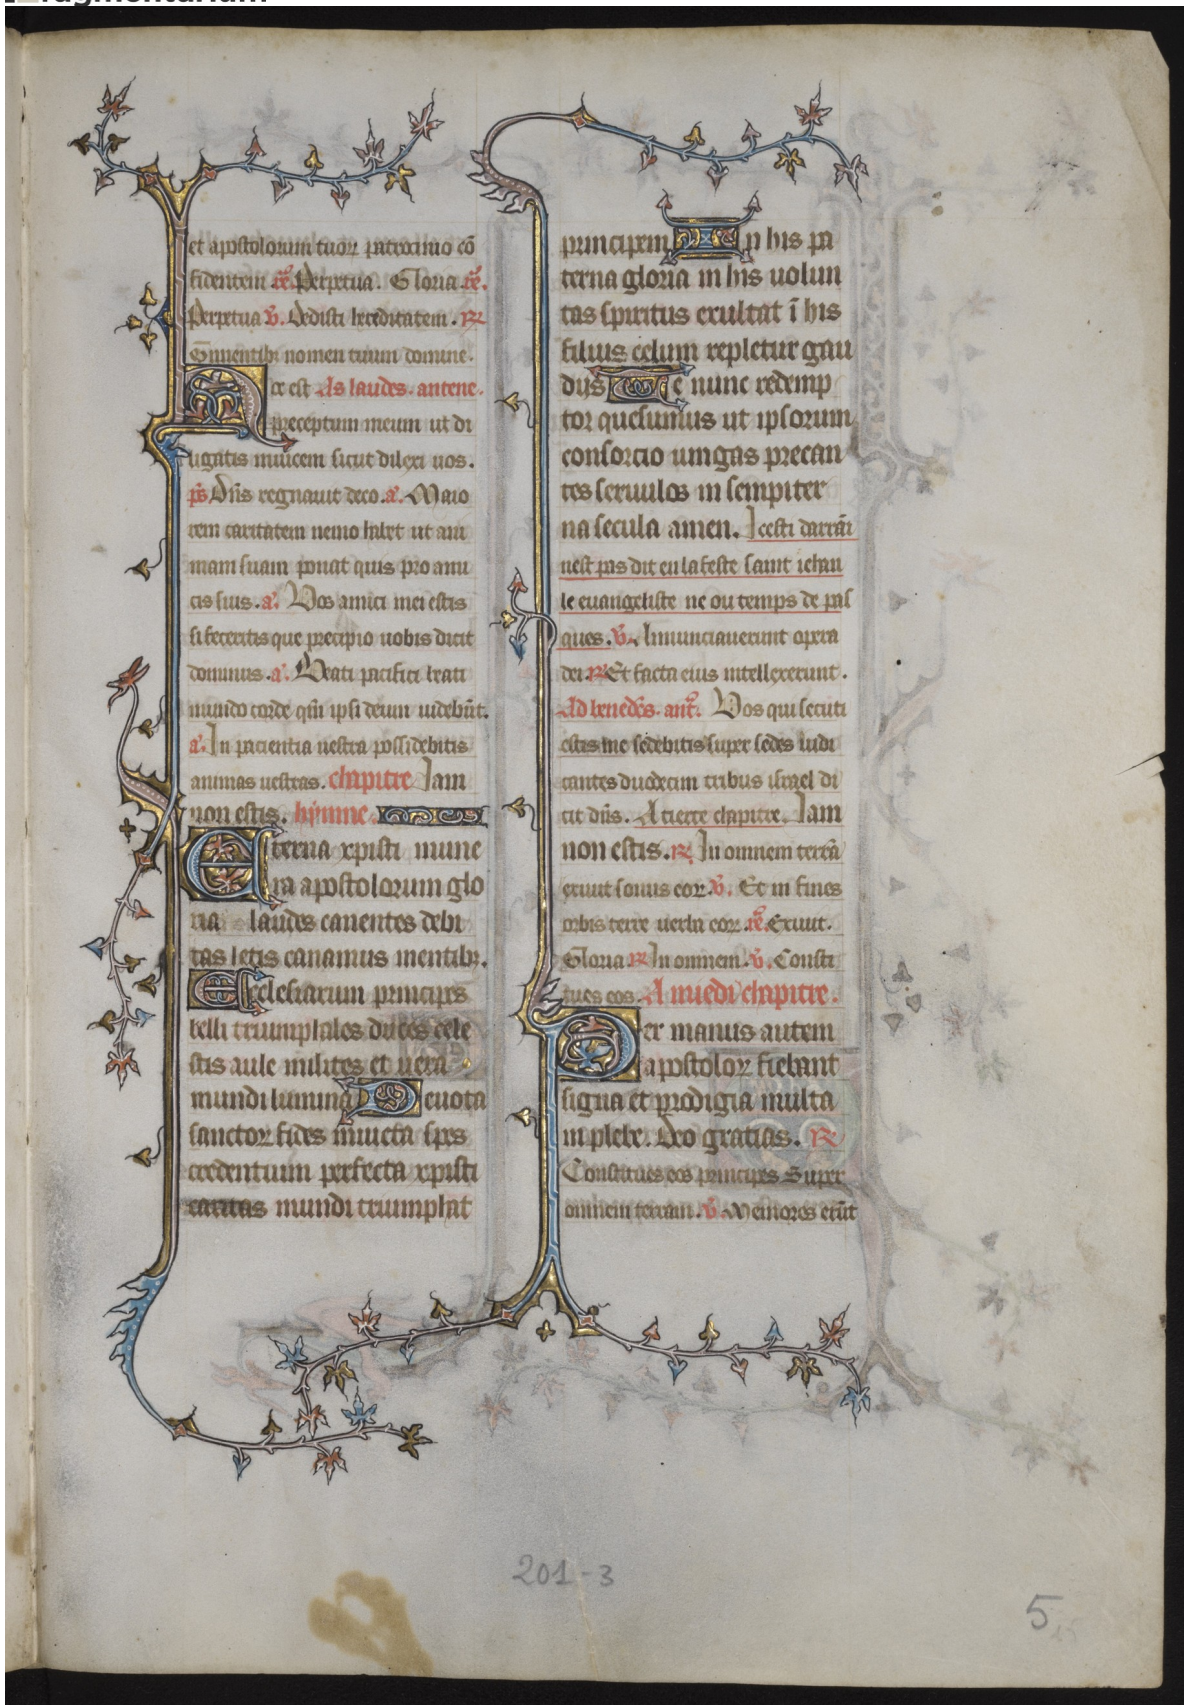 fragmentarium
et apostolorum tuoꝝ patrocinio cō
fidentem rē. Perpetua. Gloria. rē.
Perpetua v̄. Dedisti hereditatem. ꝶ
timentibꝫ nomen tuum domine.
Hec est As laudes. antene.
preceptum meum ut di
ligatis inuicem sicut dilexi uos.
ps̄ Dn̄s regnauit deco. a᷑. Maio
rem caritatem nemo habet ut ani
mam suam ponat quis pro ami
cis suis. a᷑. Vos amici mei estis
si feceritis que precipio uobis dicit
dominus. a᷑. Beati pacifici beati
mundo corde qm̄ ipsi deum uidebūt.
a᷑. In paciencia uestra possidebitis
animas uestras. chapitre Iam
non estis. hymne.
Eterna xpisti mune
ra apostolorum glo
ria laudes canentes debi
tas letis canamus mentibꝫ.
Ecclesiarum principes
belli triumphales duces cele
stis aule milites et uera
mundi lumina Deuota
sanctoꝝ fides inuicta spes
credentium perfecta xpisti
caritas mundi triumphat
principem In his pa
terna gloria in his uolun
tas spiritus exultat ī his
filius celum repletur gau
dijs Te nunc redemp
tor quesumus ut ipsorum
consorcio iungas precan
tes seruulos in sempiter
na secula amen. Icesti darrāi
nest pas dit en la feste saint iehan
le euangeliste ne ou temps de pas
ques. v̄. Annunciauerunt opera
dei ꝶ Et facta eius intellexerunt.
Ad benedc̄s. ant᷑. Vos qui secuti
estis me sedebitis super sedes iudi
cantes duodecim tribus israel di
cit dn̄s. A tierce chapitre. Iam
non estis. ꝶ In omnem terrā
exiuit sonus eoꝝ. v̄. Et in fines
orbis terre uerba eoꝝ. rē. Exiuit.
Gloria ꝶ In omnem. v̄. Consti
tues eos. A miedi chapitre.
Per manus autem
apostoloꝝ fiebant
signa et prodigia multa
in plebe. Deo gratias. ꝶ
Constitues eos principes Super
omnem terram. v̄. Memores erūt
201-3
5